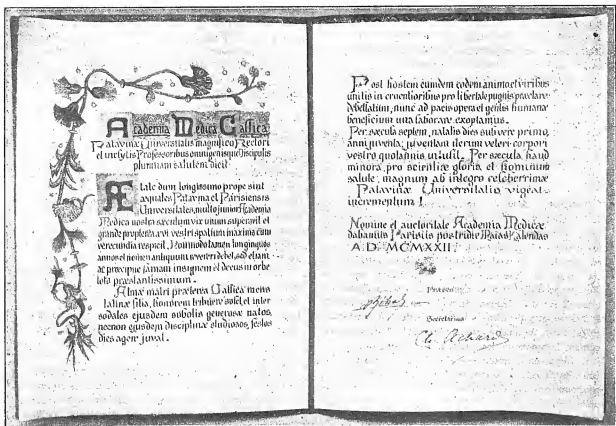 Academia Medica Gallica
Patavinæ Universitatis magnifico Rectori
et inclytis Professoribus omnigenisque Discipulis
plurimam salutem dicit
Ætate dum longissimo prope sint
æquales Patavina et Parisiensis
Universitates, multo junior Academia
Medica nostra sæculum vix unum superavit et
grande propterea ævi vestri spatium maxima cum
verecundia respicit. Hommodo tamen longinquos
annos et nomen antiquum revereri debet, sed etiam
ac præcipue famam insignem et decus in orbe
toto præstantissimum.
Almæ matri præterea Gallica mens
latinæ filia, honorem tribuere solet, et inter
sodales ejusdem sobolis generosæ natos,
necnon ejusdem disciplinæ studiosos, festos
dies agere juvat.
Post hostem eumdem eodem animo et viribus
unitis in cruentioribus pro libertate pugnis præclare
debellatum, nunc ad pacis opera et gentis humanæ
beneficium una laborare exoptamus.
Per sæcula septem, natalis dies subivere primo,
anni juventa; juventam iterum veteri corpori
vestro quotannis
Per sæcula haud
minora, pro scientiæ gloria et hominum
salute, magnum ab integro celeberrimæ
Patavinæ Universitatis vigeat
incrementum !
Nomine et auctoritate Academiæ Medicæ
dabamus Parisiis postridie Maias Kalendas
A.D. MCMXXII.
Præses
Secretarius
Ch. Achard